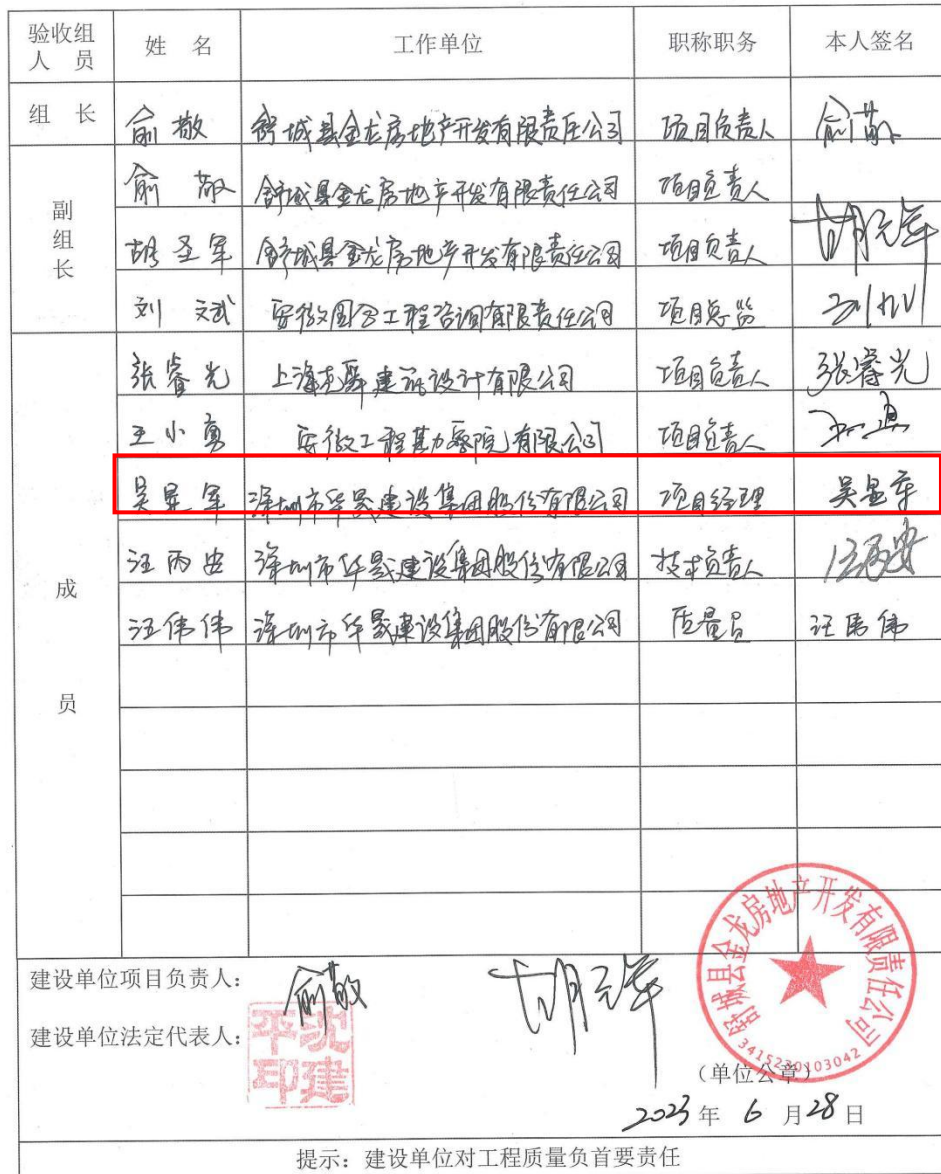 验收组人员 姓 名 工作单位 职称职务 本人签名
组 长 俞敬 舒城县金龙房地产开发有限责任公司 项目负责人 俞敬
副组长 俞敬 舒城县金龙房地产开发有限责任公司 项目负责人
胡圣军 舒城县金龙房地产开发有限责任公司 项目负责人 胡圣军
刘文斌 工程咨询有限责任公司 项目总监
成员 张睿光 上海 建筑设计有限公司 项目负责人 张睿光
王小勇 安徽工程勘察院有限公司 项目负责人
吴昱军 深圳市华晟建设集团股份有限公司 项目经理 吴昱军
汪丙安 深圳市华晟建设集团股份有限公司 技术负责人 汪丙安
汪伟伟 深圳市华晟建设集团股份有限公司 质量员 汪伟伟
建设单位项目负责人: 俞敬 胡圣军
建设单位法定代表人:
舒城县金龙房地产开发有限责任公司
3415230103042
(单位公章)
2023 年 6 月 28 日
提示:建设单位对工程质量负首要责任